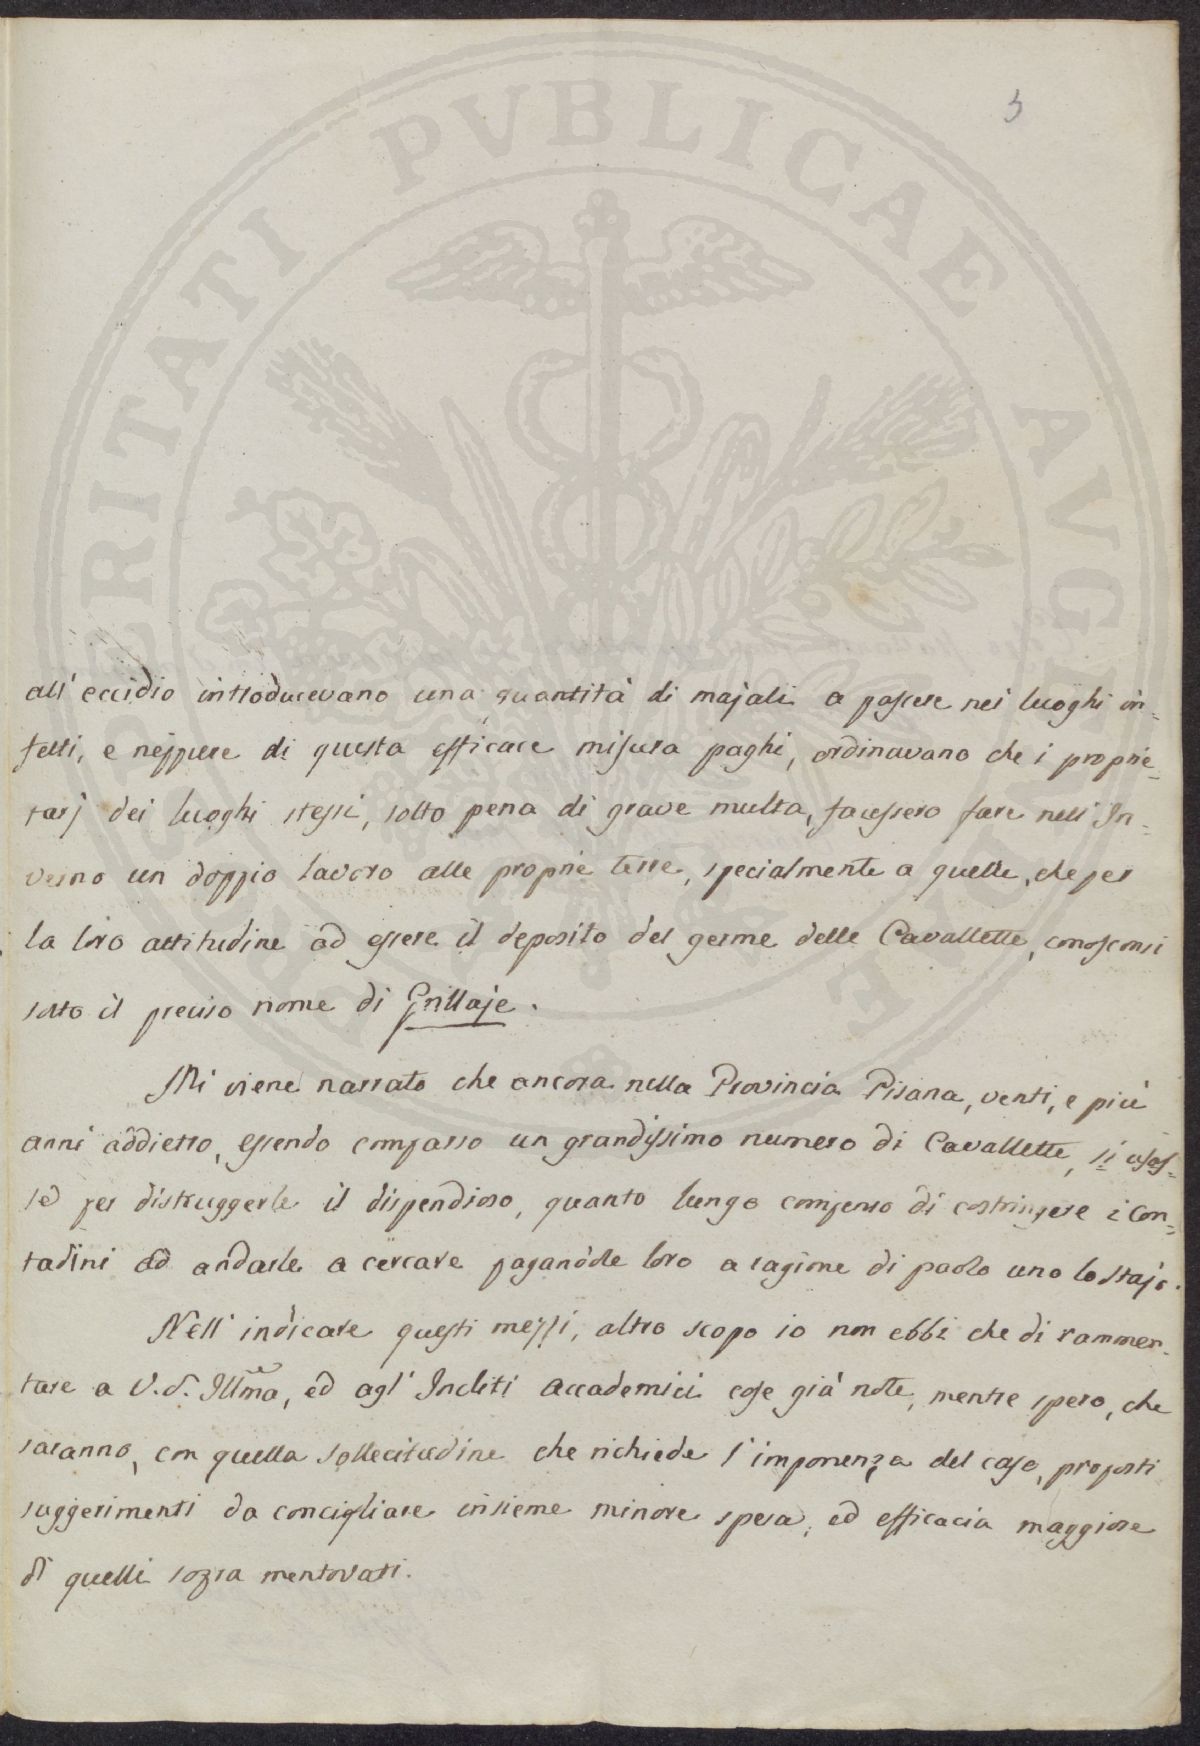 3
PROSPERITATI PVBLICAE AVGENDAE
all' eccidio introducevano una quantità di majali a pascere nei luoghi in=
fetti, e neppure di questa efficace misura paghi, ordinavano che i proprie=
tarj dei luoghi stessi, sotto pena di grave multa, facessero fare nell' In=
verno un doppio lavoro alle proprie terre, specialmente a quelle, che per
la loro attitudine ad essere il deposito del germe delle Cavallette, conosconsi
sotto il preciso nome di Grillaje.
Mi viene narrato che ancora nella Provincia Pisana, venti, e più
anni addietro, essendo comparso un grandissimo numero di Cavallette, si
se per distruggerle il dispendioso, quanto lungo compenso di costringere i Con=
tadini ad andarle a cercare pagandole loro a ragione di paolo uno lo stajo.
Nell' indicare questi mezzi, altro scopo io non ebbi che di rammen=
tare a V.S. Illma, ed agl' Incliti Accademici cose già note, mentre spero, che
saranno, con quella sollecitudine che richiede l' imponenza del caso, proposti
suggerimenti da concigliare insieme minore spesa, ed efficacia maggiore
di quelli sopra mentovati.